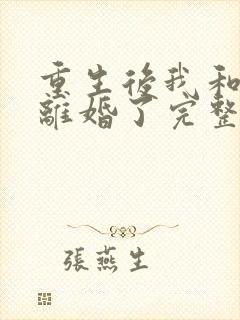 重生後我和
離婚了完整
張燕生